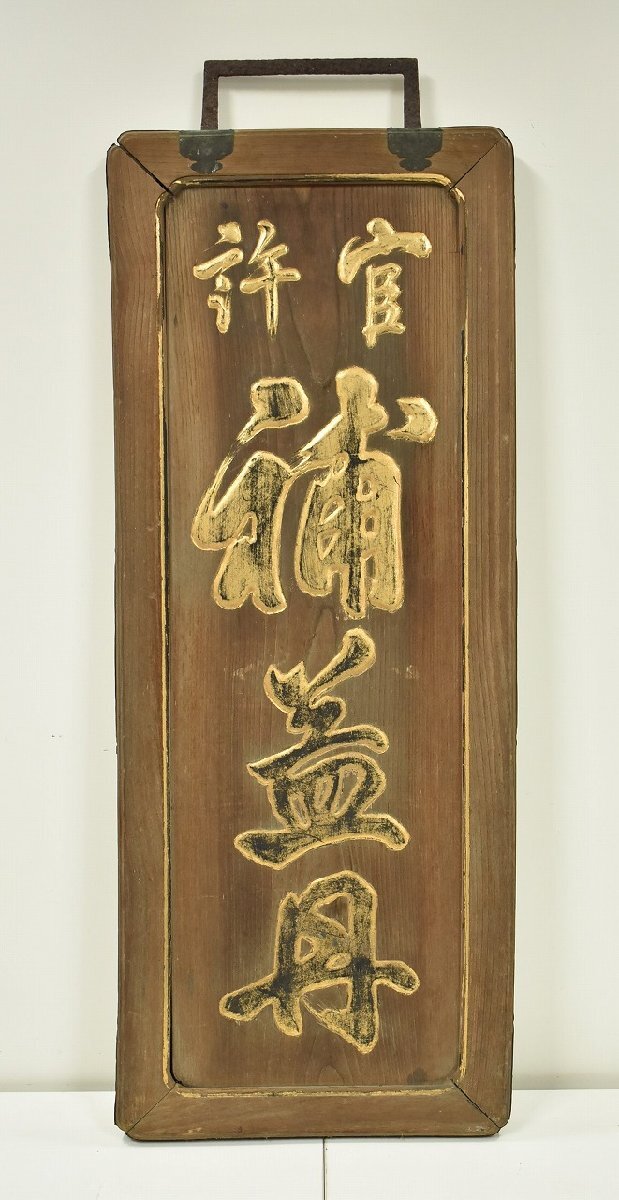 官許
補益丹